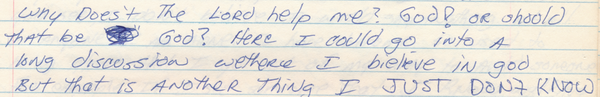 Why Does't The Lord help me? God? or should
that be God? Here I could go into a
long discussion wethere I bieleve in god
But that is Another Thing I JUST DON'T KNOW